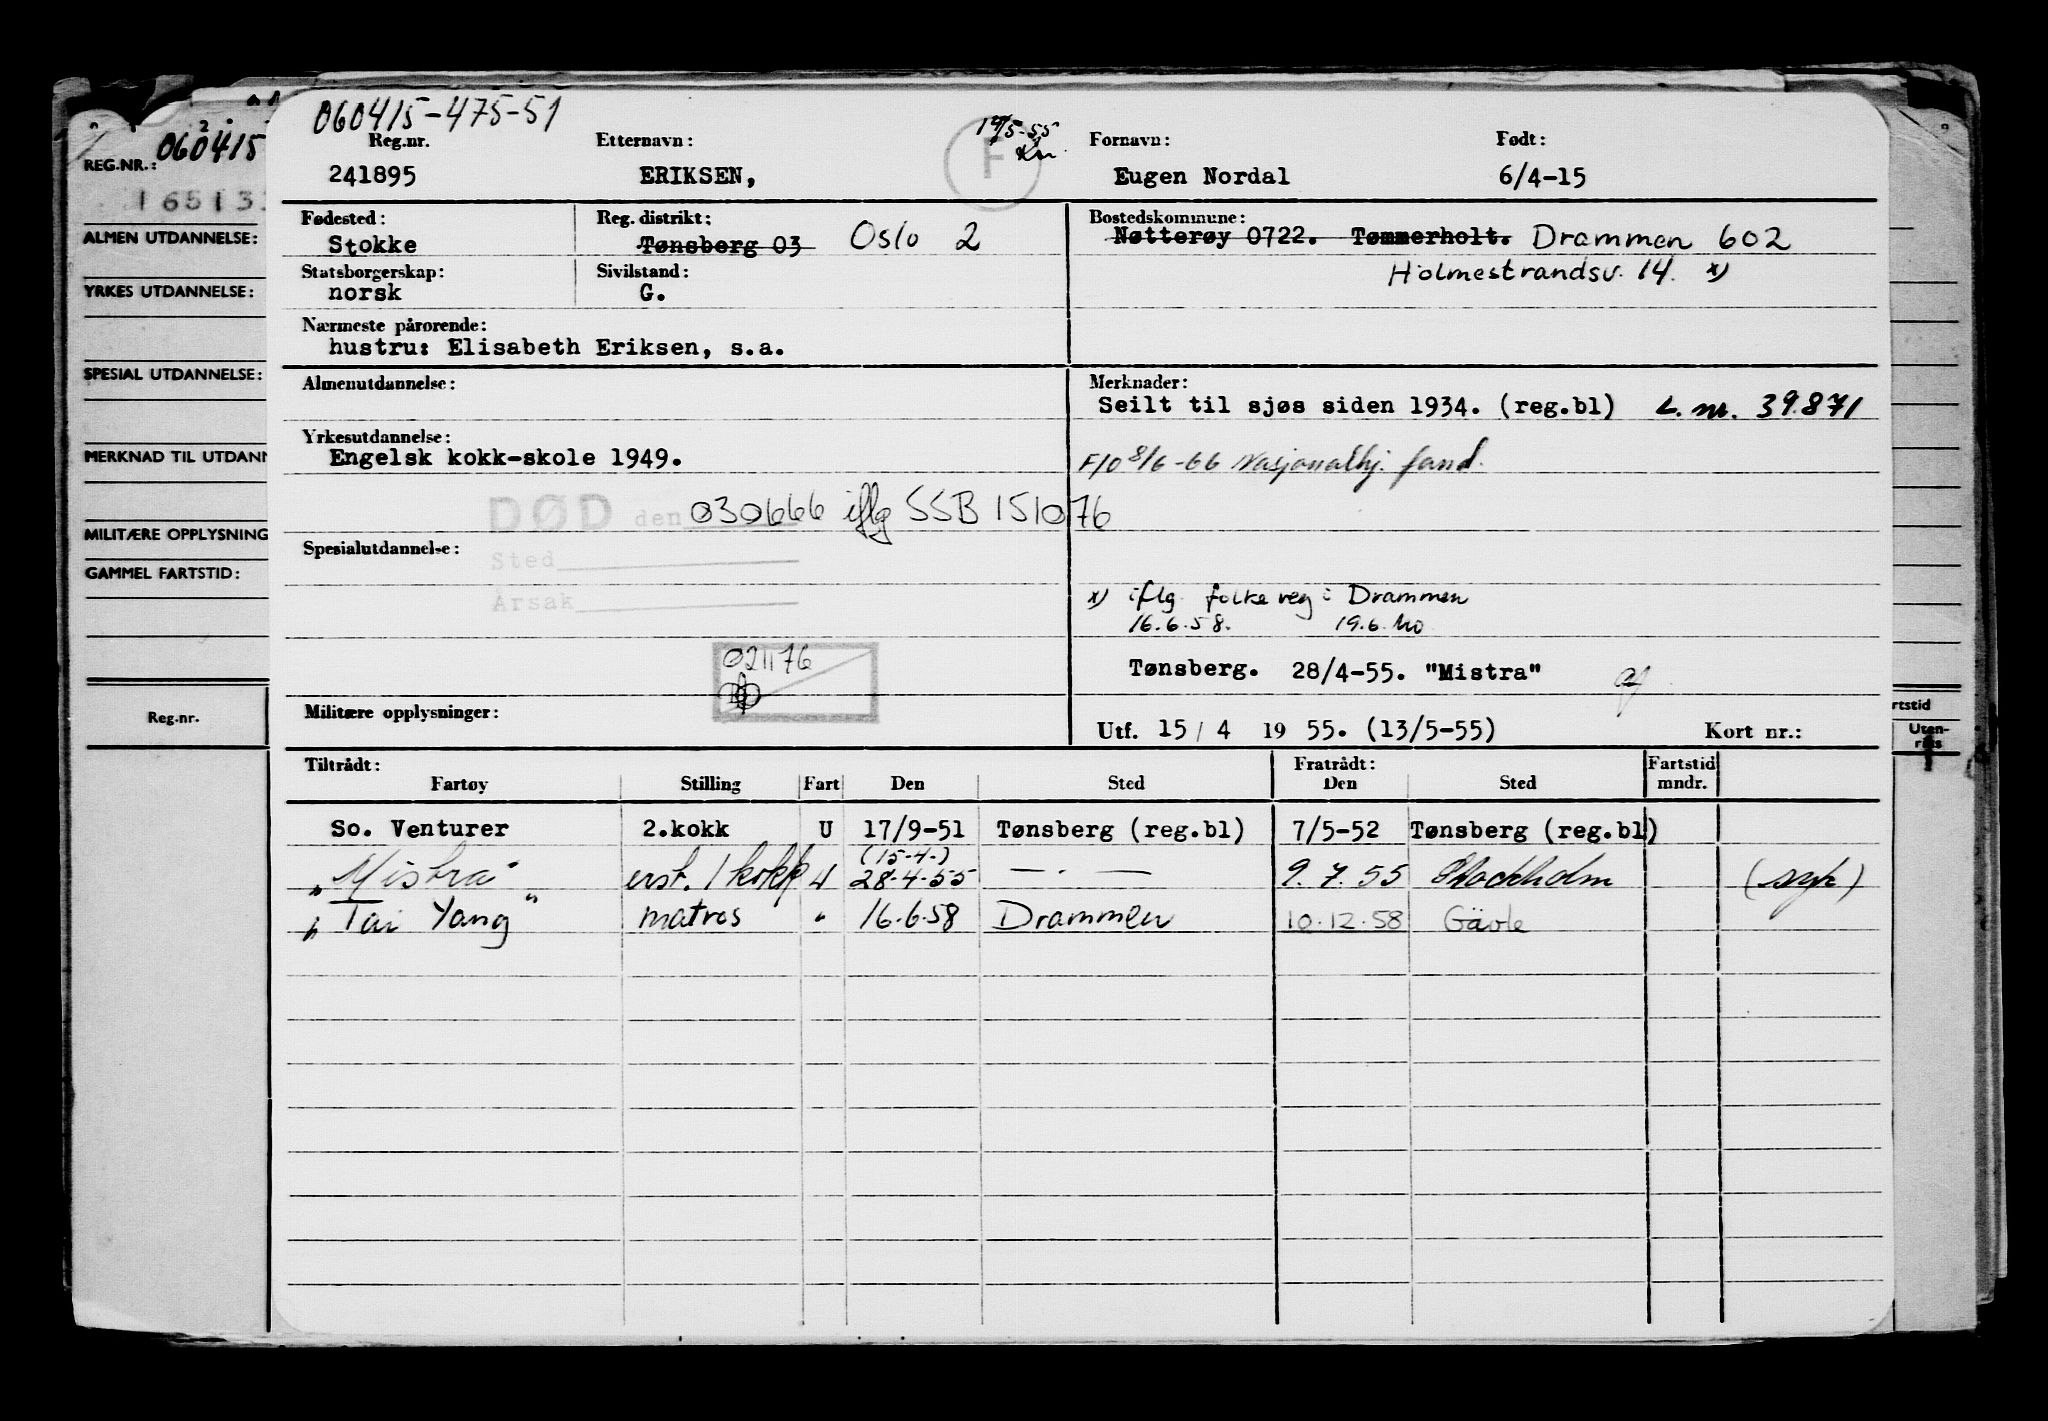 060415-475-51
060415
REG.NR.:
16513
ALMEN UTDANNELSE:
YRKES UTDANNELSE:
SPESIAL UTDANNELSE:
MERKNAD TIL UTDANN
MILITÆRE OPPLYSNING
GAMMEL FARTSTID:
Reg.nr.
Reg.nr. Etternavn: F Fornavn: Født:
241895 ERIKSEN, Eugen Nordal 6/4-15
Fødested: Reg. distrikt: Bostedskommune:
Stokke Tønsberg 03 Oslo 2 Nøtterøy 0722. Tømmerholt. Drammen 602
Statsborgerskap: Sivilstand: Holmestrandsv. 14. x)
norsk G.
Nærmeste pårørende:
hustru: Elisabeth Eriksen, s.a.
Almenutdannelse: Merknader:
Seilt til sjøs siden 1934. (reg.bl) L. nr. 39.871
Yrkesutdannelse:
Engelsk kokk-skole 1949. F/O 8/6-66 Nasjonalhj. fond.
DØD den 030666 iflg SSB 151076
Spesialutdannelse:
Sted
Årsak
x) iflg. folkereg i Drammen
16.6.58. 19.6.
021176
Tønsberg. 28/4-55. "Mistra"
Militære opplysninger:
Utf. 15/4 1955. (13/5-55) Kort nr.:
Tiltrådt: Fratrådt: Fartstid
Fartøy Stilling Fart Den Sted Den Sted mndr.
So. Venturer 2.kokk U 17/9-51 Tønsberg (reg.bl) 7/5-52 Tønsberg (reg.bl)
(15-4-)
"Mistra" erst. 1 kokk U 28-4-55 — . — 9.7.55 Stockholm (syk)
"Tai Yang" matros " 16.6.58 Drammen 10.12.58 Gävle
rtstid
Uten-
riks